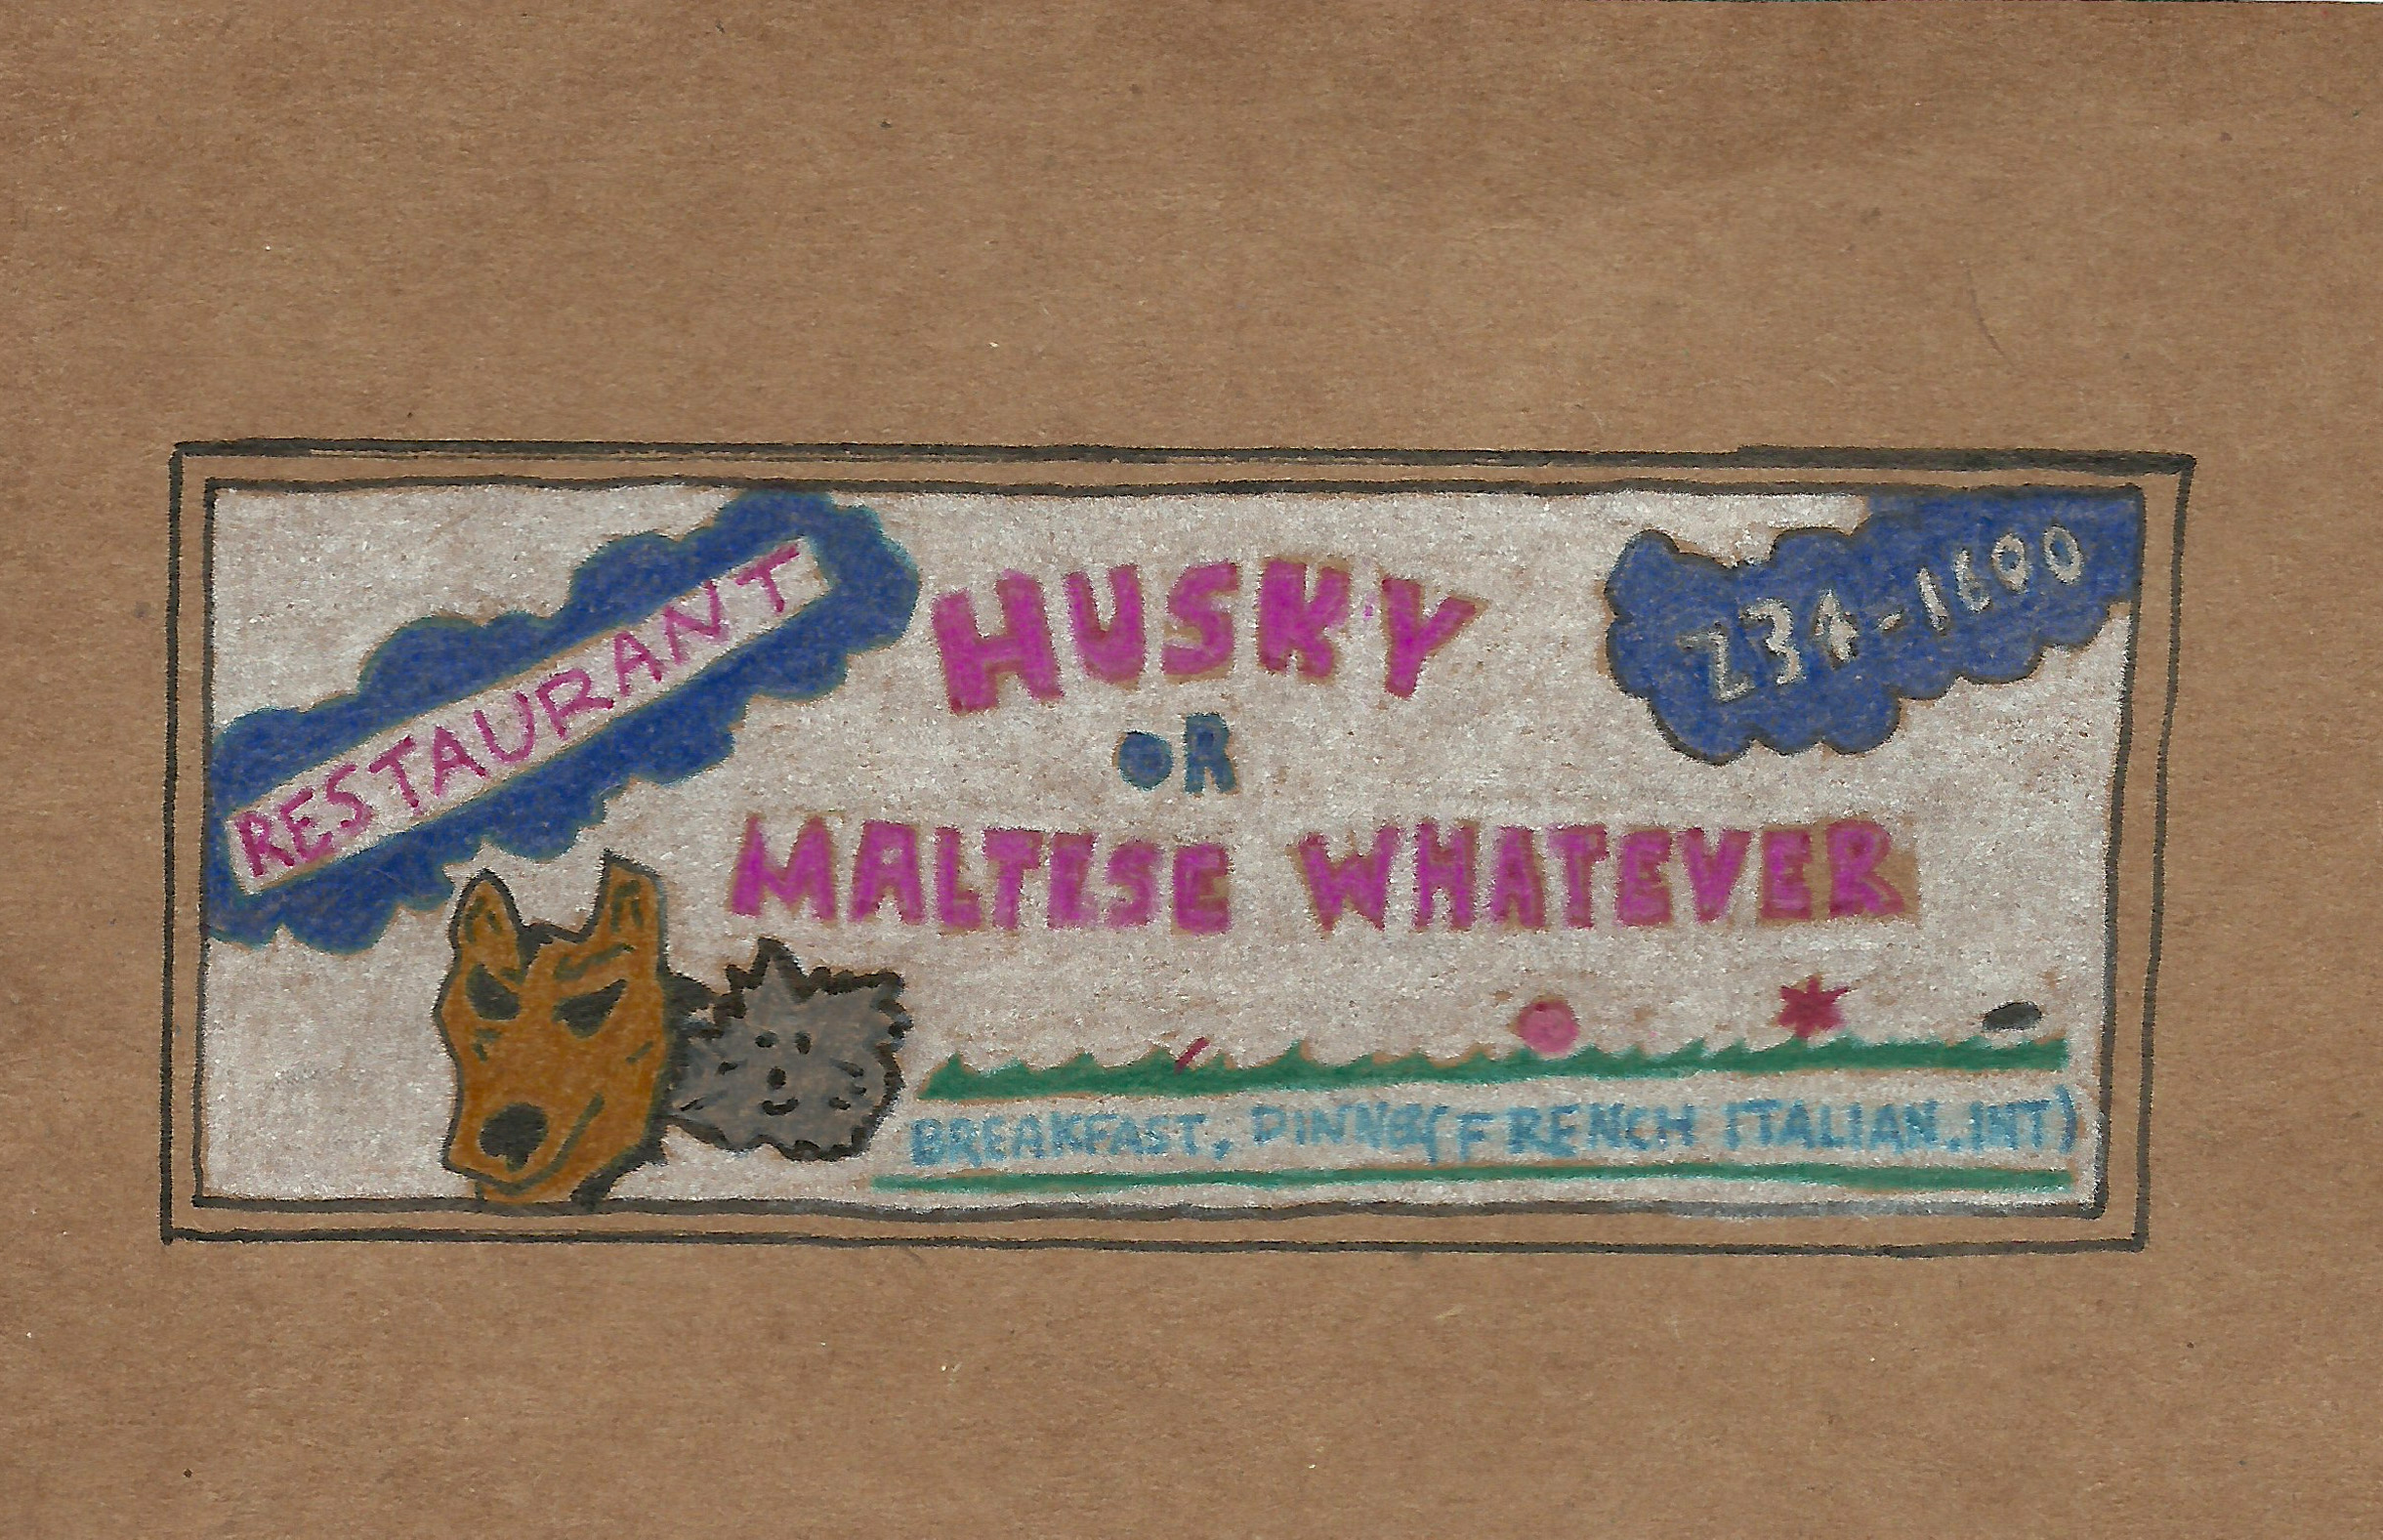 RESTAURANT
HUSKY
OR
MALTESE WHATEVER
234-1600
BREAKFAST, DINNE(FRENCH ITALIAN.INT)